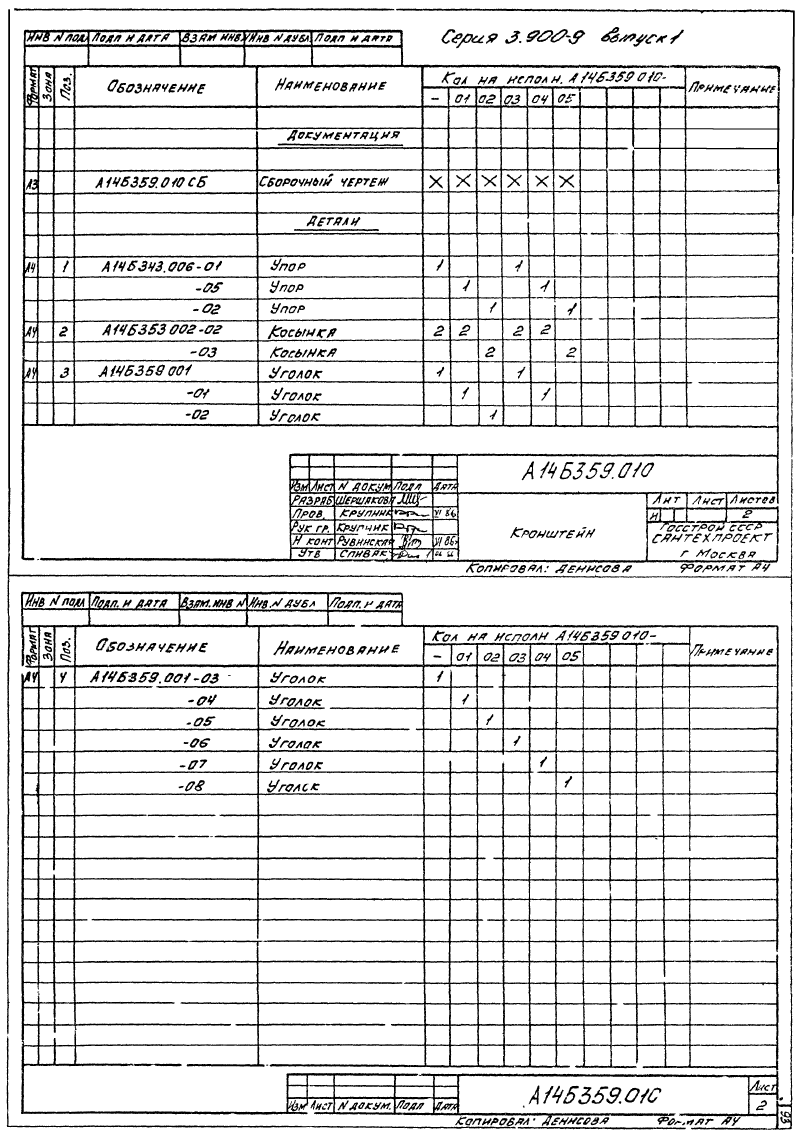 Серия 3.900-9 выпуск 1
ИНВ N ПОДЛ ПОДП И ДАТА ВЗАМ ИНВ N ИНВ N ДУБЛ ПОДП И ДАТА
ФОРМАТ ЗОНА ПОЗ. ОБОЗНАЧЕНИЕ НАИМЕНОВАНИЕ КОЛ НА ИСПОЛН. А14Б359 010- ПРИМЕЧАНИЕ
- 01 02 03 04 05
ДОКУМЕНТАЦИЯ
А3 А14Б359.010 СБ СБОРОЧНЫЙ ЧЕРТЕЖ X X X X X X
ДЕТАЛИ
А4 1 А14Б343.006-01 УПОР 1 1
-05 УПОР 1 1
-02 УПОР 1 1
А4 2 А14Б353 002-02 КОСЫНКА 2 2 2 2
-03 КОСЫНКА 2 2
А4 3 А14Б359 001 УГОЛОК 1 1
-01 УГОЛОК 1 1
-02 УГОЛОК 1
А14Б359.010
ИЗМ ЛИСТ N ДОКУМ ПОДП ДАТА
РАЗРАБ ШЕРШАКОВА
ПРОВ. КРУПНИК VI 86.
РУК ГР. КРУПНИК
Н КОНТ РУВИНСКАЯ VI 86.
УТВ СПИВАК
КРОНШТЕЙН
ЛИТ ЛИСТ ЛИСТОВ
И 2
ГОССТРОЙ СССР
САНТЕХПРОЕКТ
г МОСКВА
КОПИРОВАЛ: ДЕНИСОВА ФОРМАТ А4
ИНВ N ПОДЛ ПОДП. И ДАТА ВЗАМ. ИНВ N ИНВ. N ДУБЛ ПОДП. И ДАТА
ФОРМАТ ЗОНА ПОЗ. ОБОЗНАЧЕНИЕ НАИМЕНОВАНИЕ КОЛ НА ИСПОЛН А14Б359 010- ПРИМЕЧАНИЕ
- 01 02 03 04 05
А4 4 А14Б359.001-03 УГОЛОК 1
-04 УГОЛОК 1
-05 УГОЛОК 1
-06 УГОЛОК 1
-07 УГОЛОК 1
-08 УГОЛОК 1
ИЗМ ЛИСТ N ДОКУМ. ПОДП ДАТА
А14Б359.010
ЛИСТ
2
КОПИРОВАЛ: ДЕНИСОВА ФОРМАТ А4